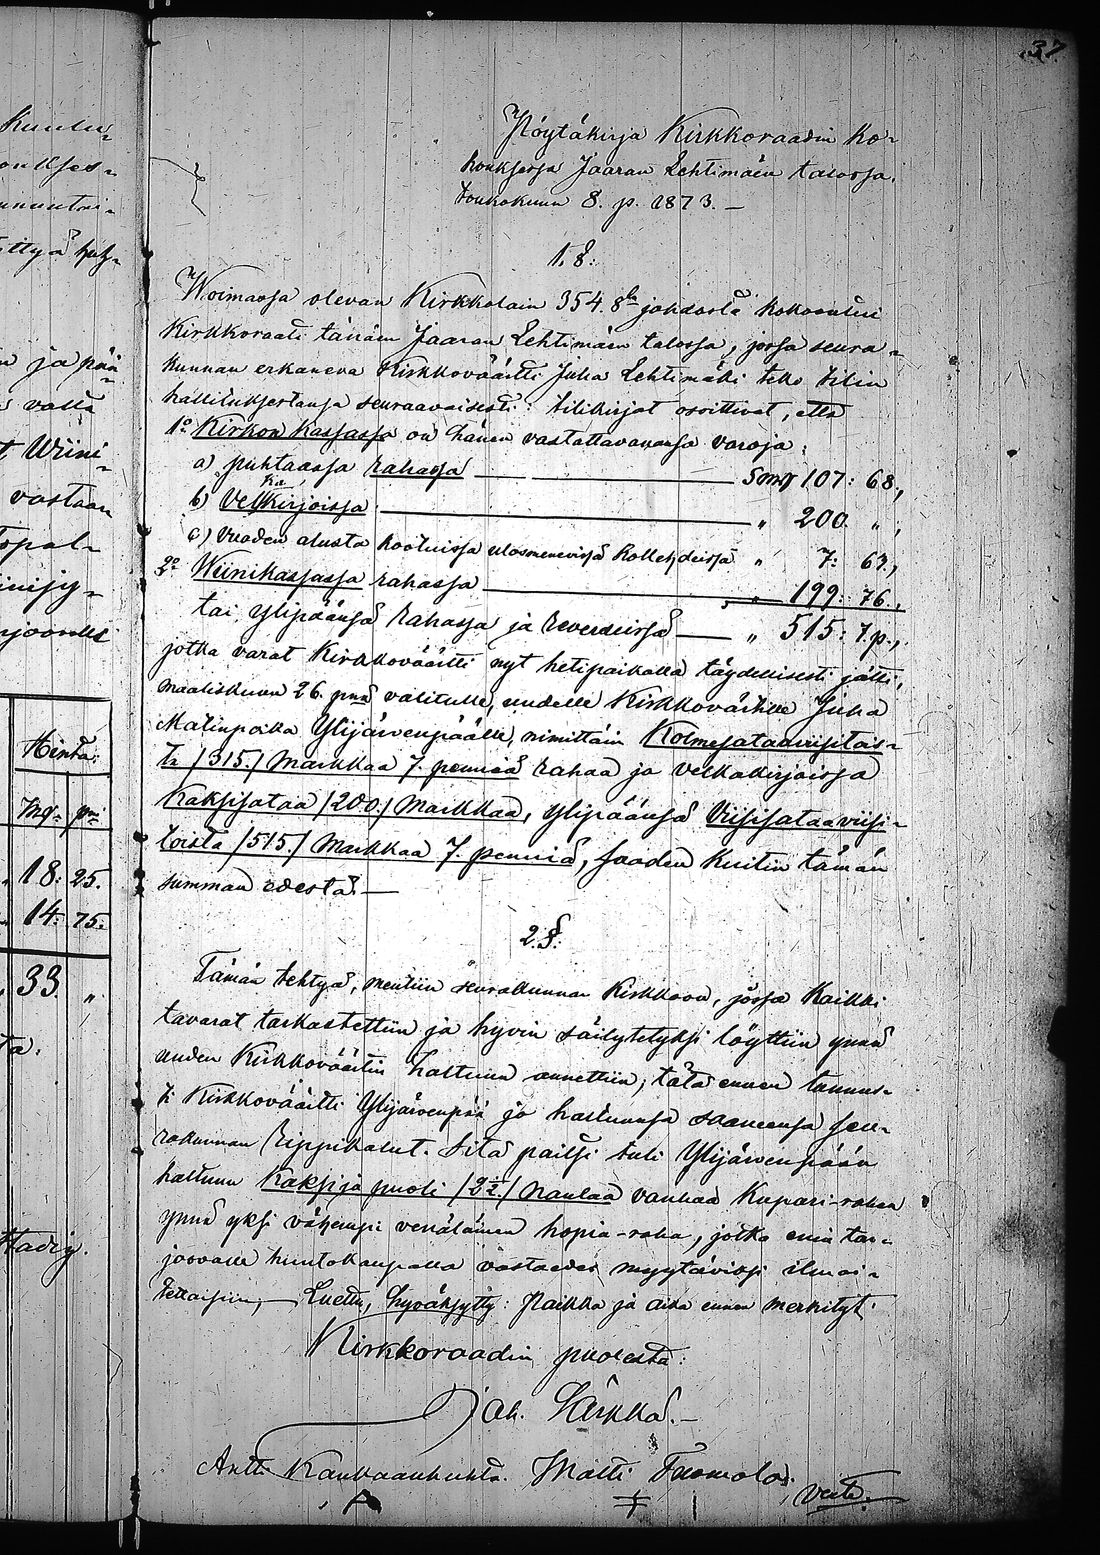 37
Pöytäkirja Kirkkoraadin ko-
kouksessa Jaaran Lehtimäen talossa,
toukokuun 8. p. 1873. —
1.§:
Woimassa olevan Kirkkolain 354. §:ln johdosta kokoontui
Kirkkoraati tänään Jaaran Lehtimäen talossa, jossa seura-
kunnan erkaneva Kirkkoväärtti Juha Lehtimäki teki tilin
hallituksestansa seuraavaisesti: tilikirjat osoittivat, että
1o Kirkon kassassa on hänen vastattavanansa varoja:
a) puhtaassa rahassa — Smg 107: 68.,
b) Velkakirjoissa — „ 200. „ ,
c) Vuoden alusta kootuissa ulosmenevissä Kollehdeissa „ 7: 63.,
2o Wiinikassassa rahassa — „ 199: 76.,
tai ylipäänsä rahassa ja reverseissä — „ 515: 7.p.,
jotka varat Kirkkoväärtti nyt hetipaikalla täydellisesti jätti,
maaliskuun 26. pnä valitulle, uudelle Kirkkovärtille Juha
Matinpoika Ylijärvenpäälle, nimittäin Kolmesataaviisitois-
ta /315./ Markkaa 7. penniä rahaa ja velkakirjoissa
Kaksisataa /200./ Markkaa, ylipäänsä Viisisataaviisi-
toista /515./ Markkaa 7. penniä, saaden kuitin tämän
summan edestä. —
2.§:
Tämän tehtyä, mentiin seurakunnan Kirkkoon, jossa kaikki
tavarat tarkastettiin ja hyvin säilytetyksi löyttiin ynnä
uuden Kirkkoväärtin haltuun annettiin; tätä ennen tunnus-
ti Kirkkoväärtti Ylijärvenpää jo haltuunsa saaneensa seu-
rakunnan Rippikalut. Sitä paitsi tuli Ylijärvenpään
haltuun Kaksi ja puoli /2½./ naulaa vanhaa Kupari-rahaa
ynnä yksi vähempi venäläinen hopia-raha, jotka enin tar-
joovalle huutokaupalla vastaedes myytäviksi ilmoi-
tettaisiin, — Luettu, hyväksytty: Paikka ja aika ennen merkityt.
Kirkkoraadin puolesta:
Joh. Särkkä. —
Antti Kankaanhuhta. Matti Tuomola.
veits.
Kuulu-
oukses-
ittyä
n ja pää-
valta
t Wiini-
vastaan
Hinta:
Mg. pni
18: 25.
14: 75.
33. „
ta.